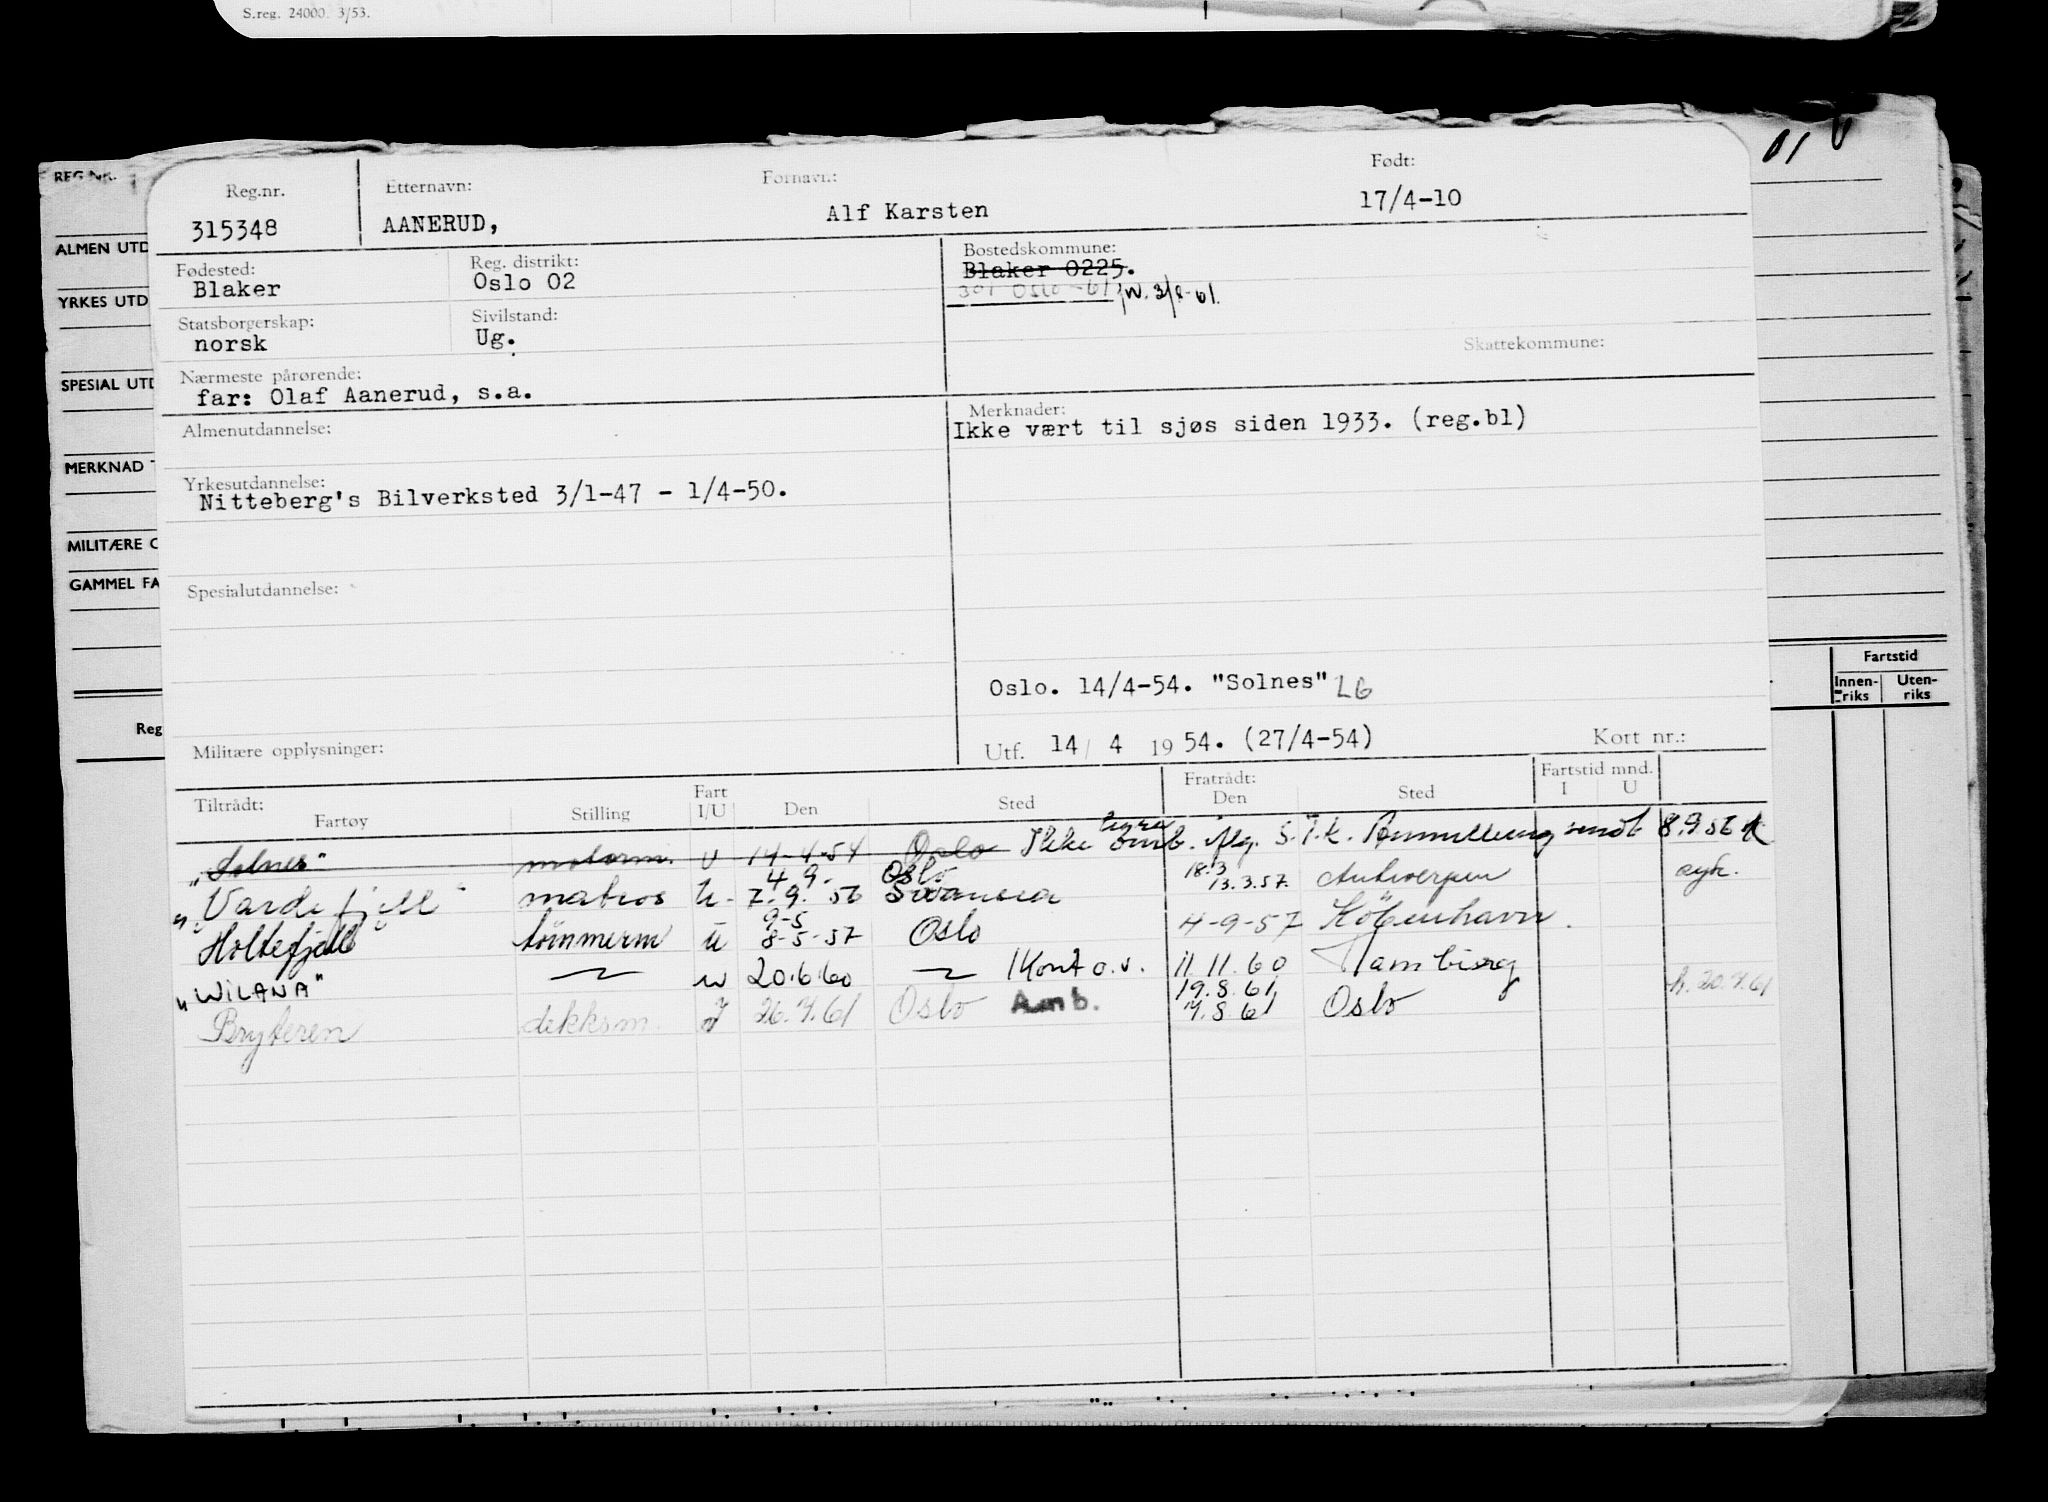 S.reg. 24000. 3/53.
REG.NR.
ALMEN UTD
YRKES UTD
SPESIAL UTD
MERKNAD
MILITÆRE O
GAMMEL FA
Reg
Fartstid
Innen-riks Uten-riks
Reg.nr. Etternavn: Fornavn: Født:
315348 AANERUD, Alf Karsten 17/4-10
Fødested: Reg. distrikt: Bostedskommune:
Blaker Oslo 02 Blaker 0225.
301 Oslo -61
Statsborgerskap: Sivilstand:
norsk Ug.
Skattekommune:
Nærmeste pårørende:
far: Olaf Aanerud, s.a.
Almenutdannelse: Merknader:
Ikke vært til sjøs siden 1933. (reg.bl)
Yrkesutdannelse:
Nitteberg's Bilverksted 3/1-47 - 1/4-50.
Spesialutdannelse:
Oslo. 14/4-54. "Solnes" LG
Militære opplysninger: Utf. 14/ 4 1954. (27/4-54) Kort nr.:
Tiltrådt: Fratrådt: Fartstid mnd.
Fartøy Stilling Fart I/U Den Sted Den Sted I U
"Solnes" motorm. U 14-4-54 Oslo Ikke S.T.k. sendt 8.9.56
4.9. Oslo 18.3
"Vardefjell" matros U. 7.9.56 Swansea 13.3.57 Antwerpen
9-5
"Holtefjell" tömmerm U 8-5-57 Oslo 4-9-57 Köbenhavn.
"WILANA" 〃 U 20.6.60 〃 Kont o.v. 11.11.60 Hamburg
19.8.61
Bryteren dekksm. I 26.7.61 Oslo Amb. 7.8.61 Oslo h.20.7.61